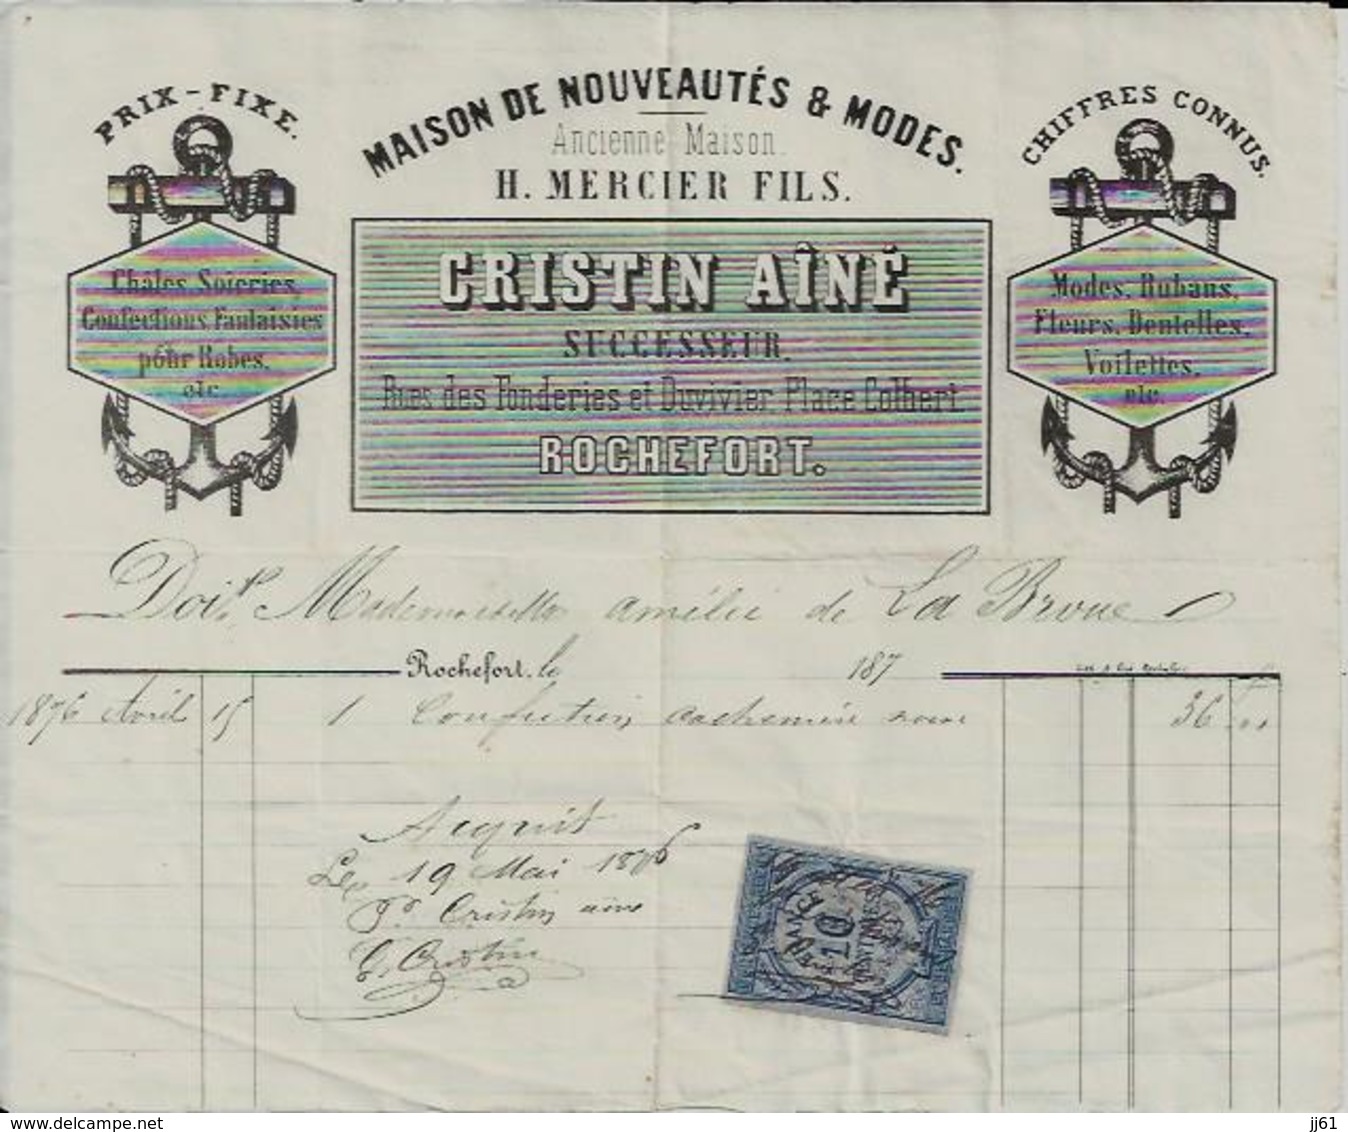 PRIX-FIXE.
MAISON DE NOUVEAUTÉS & MODES.
CHIFFRES CONNUS.
Ancienne Maison
H. MERCIER FILS.
Châles, Soieries,
Confections, Fantaisies
pour Robes,
etc.
CRISTIN AÎNÉ
SUCCESSEUR.
Rues des Fonderies et Duvivier Place Colbert
ROCHEFORT.
Modes, Rubans,
Fleurs, Dentelles,
Voilettes,
etc.
Doit Mademoiselle Amélie de La Broue
Rochefort, le 187
1876 Avril 15 1 Confection cachemire 36
Acquit
Le 19 Mai 1876
Pr Cristin ainé
Cristin
10
delcampe.net
jj61